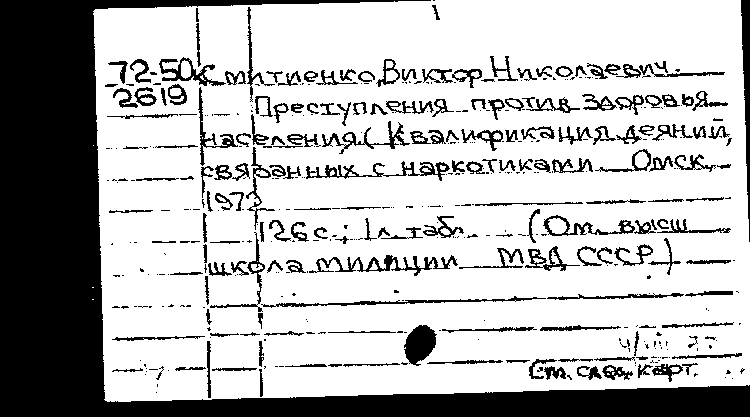 72-50 Смитиенко, Виктор Николаевич.
2619 Преступления против здоровья
населения. (Квалификация деяний,
связанных с наркотиками. Омск,
1972
126 с.; 1 л. табл. (Ом. высш
школа милиции МВД СССР)
См. след. карт.